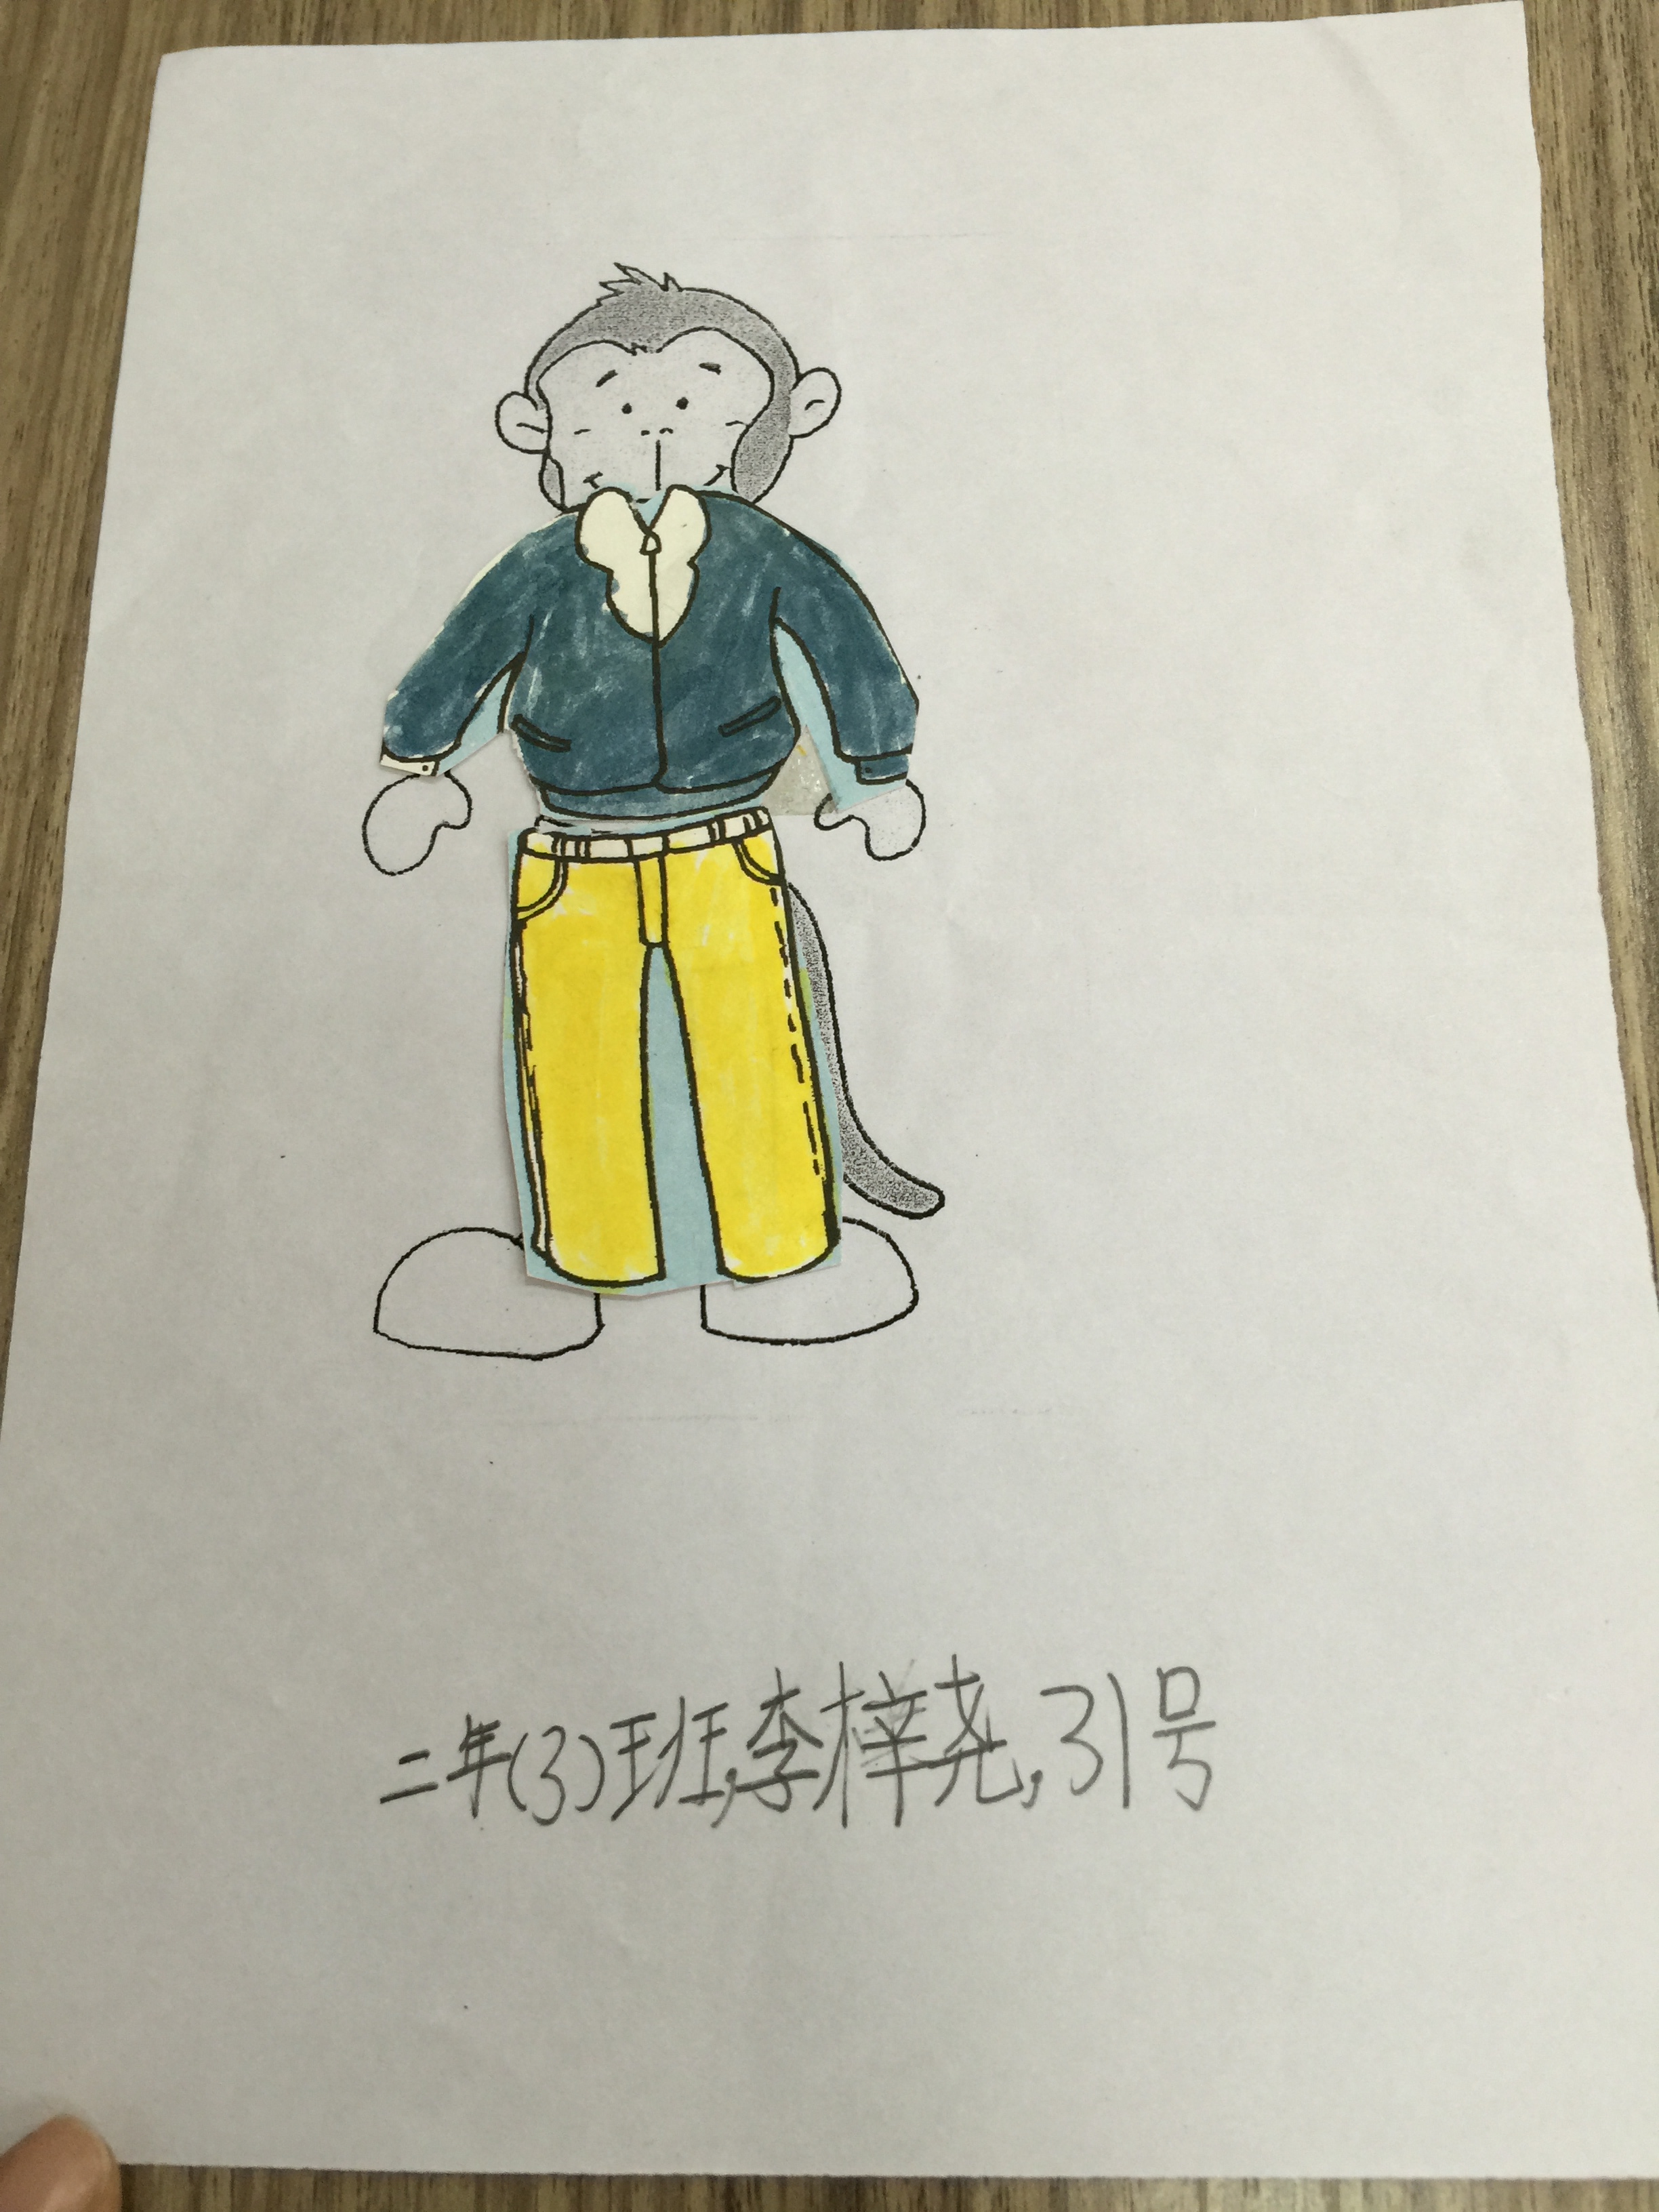 二年(3)班,李梓尧,31号